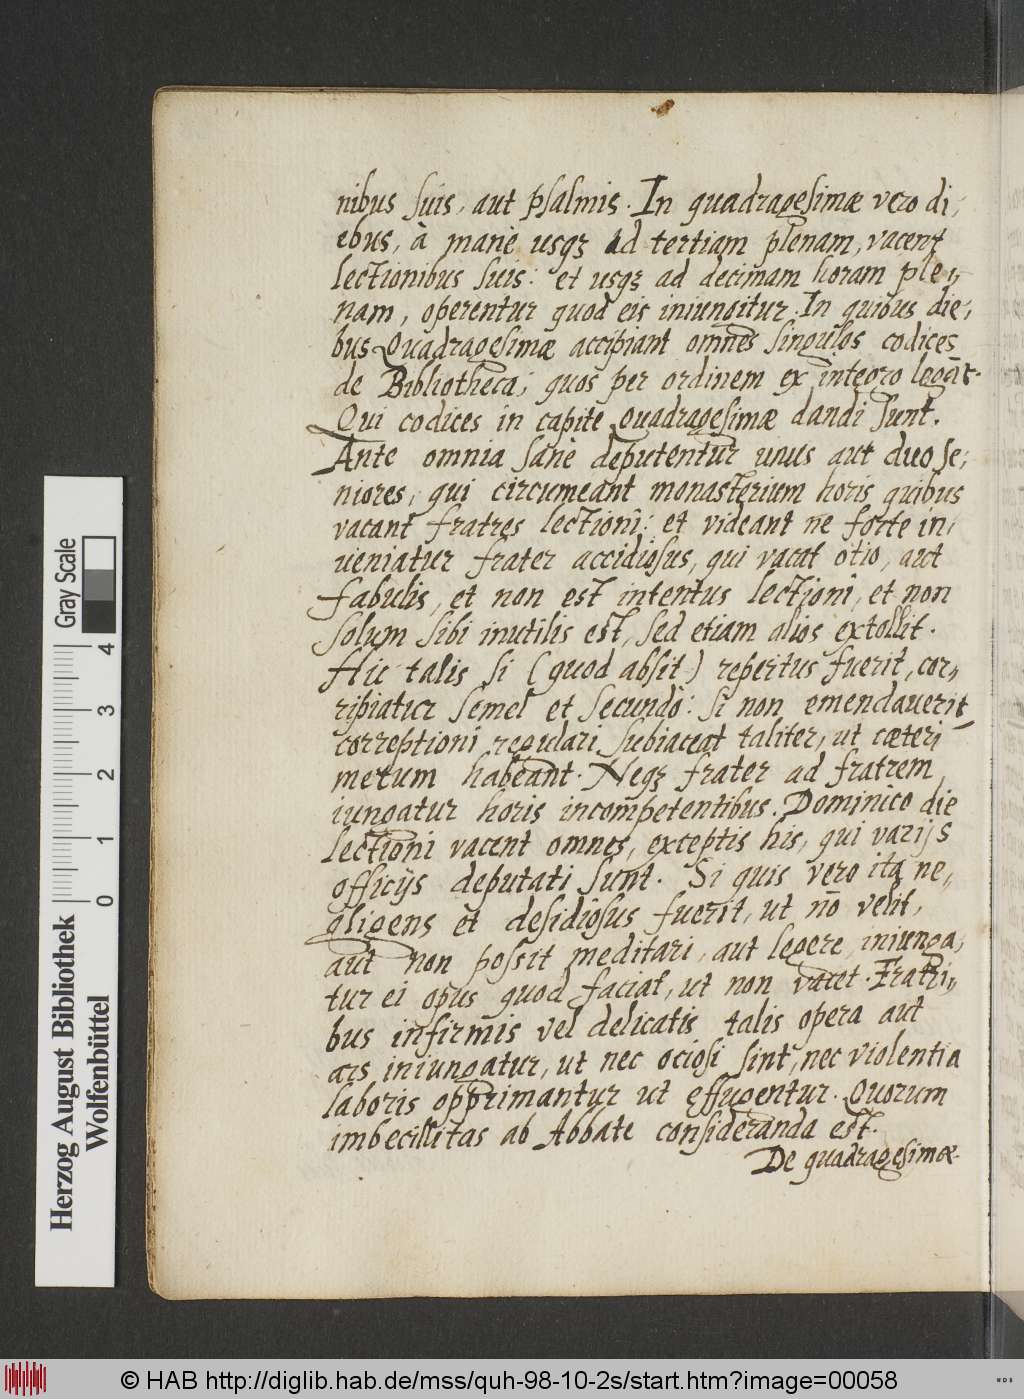 nibus suis, aut psalmis. In quadragesimæ vero di,
ebus, à manè usqȝ ad tertiam plenam, vacent
lectionibus suis: et usqȝ ad decimam horam ple,,
nam, operentur quod eis iniungitur. In quibus die,
bus Quadragesimæ accipiant omnes singulos codices
de Bibliotheca; quos per ordinem ex integro legāt.
Qui codices in capite Quadragesimæ dandi sunt.
Ante omnia sanè deputentur unus aut duo se,
niores, qui circumeant monasterium horis quibus
vacant fratres lectioni: et videant ne forte in,
veniatur frater accidiosus, qui vacat otio, aut
fabulis, et non est intentus lectioni, et non
solum sibi inutilis est, sed etiam alios extollit.
Hic talis si (quod absit) repertus fuerit, cor,,
ripiatur semel et secundò: si non emendaverit
correptioni regulari subiaceat taliter, ut cæteri
metum habeant. Neqȝ frater ad fratrem
iungatur horis incompetentibus. Dominico die
lectioni vacent omnes, exceptis his, qui varijs
officijs deputati sunt. Si quis vero ita ne,,
gligens et desidiosus fuerit, ut nō velit,
aut non possit meditari, aut legere, iniunga,
tur ei opus quod faciat, ut non vacet. Fratri,,
bus infirmis vel delicatis talis opera aut
ars iniungatur, ut nec ociosi sint, nec violentia
laboris opprimantur ut effugentur. Quorum
imbecillitas ab Abbate consideranda est.
De quadragesimæ.
Herzog August Bibliothek
Wolfenbüttel
Gray Scale
0 1 2 3 4
© HAB http://diglib.hab.de/mss/quh-98-10-2s/start.htm?image=00058